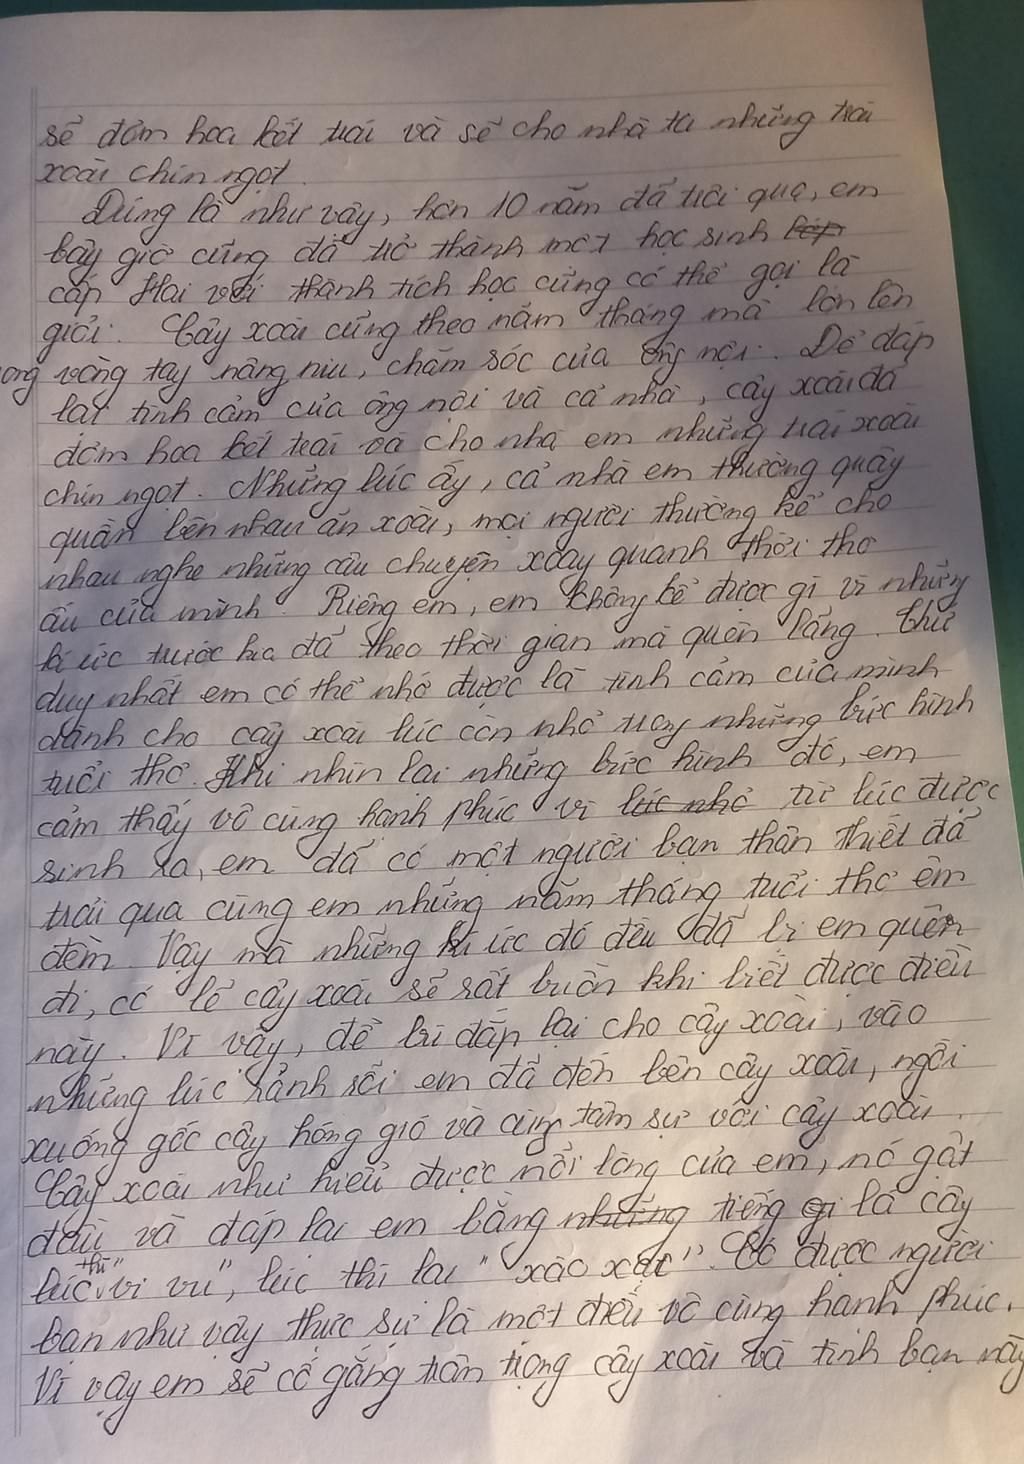 sẽ đơm hoa kết trái và sẽ cho nhà ta những trái
xoài chín ngọt.
Đúng là như vậy, hơn 10 năm đã trôi qua, em
bây giờ cũng đã trở thành một học sinh lớp
cấp Hai với thành tích học cũng có thể gọi là
giỏi. Cây xoài cũng theo năm tháng mà lớn lên
ong vòng tay nâng niu, chăm sóc của ông nội. Để đáp
lại tình cảm của ông nội và cả nhà, cây xoài đã
đơm hoa kết trái và cho nhà em những trái xoài
chín ngọt. Những lúc ấy, cả nhà em thường quây
quần bên nhau ăn xoài, mọi người thường kể cho
nhau nghe những câu chuyện xoay quanh thời thơ
ấu của mình. Riêng em, em không kể được gì vì những
kí ức trước kia đã theo thời gian mà quên lãng. Thứ
duy nhất em có thể nhớ được là tình cảm của mình
dành cho cây xoài lúc còn nhỏ trong những bức hình
tuổi thơ. Khi nhìn lại những bức hình đó, em
cảm thấy vô cùng hạnh phúc vì lúc nhỏ từ lúc được
sinh ra, em đã có một người bạn thân thiết đã
trải qua cùng em những năm tháng tuổi thơ êm
đềm. Vậy mà những kí ức đó đều đã bị em quên
đi, có lẽ cây xoài sẽ rất buồn khi biết được điều
này. Vì vậy, để bù đắp lại cho cây xoài, vào
những lúc rảnh rỗi em đã đến bên cây xoài, ngồi
xuống gốc cây hóng gió và cùng tâm sự với cây xoài.
Cây xoài như hiểu được nỗi lòng của em, nó gật
đầu và đáp lại em bằng những tiếng gi lá cây
lúc thì "vi vu", lúc thì lại "xào xạc". Có được người
bạn như vậy thực sự là một điều vô cùng hạnh phúc.
Vì vậy em sẽ cố gắng trân trọng cây xoài và tình bạn này